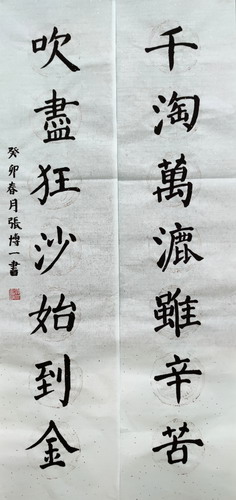 千淘萬漉雖辛苦
吹盡狂沙始到金
癸卯春月張博一書